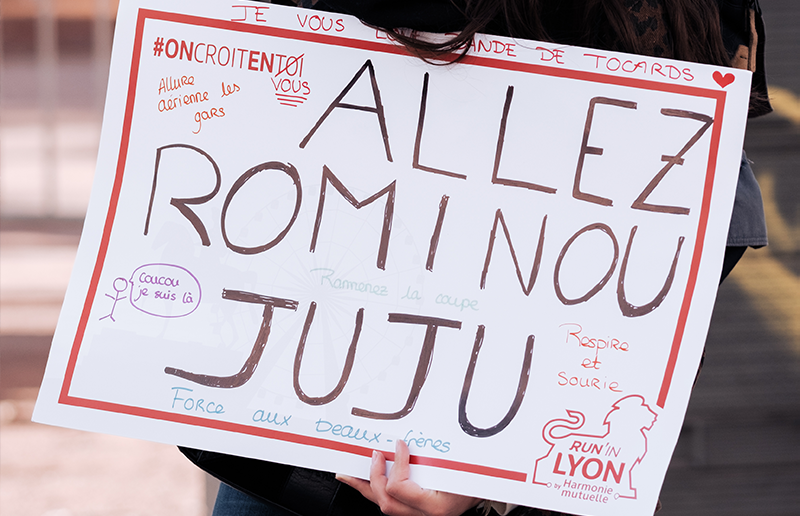 JE VOUS DE TOCARDS
#ONCROITENTOI
VOUS
Allure
aérienne les
gars
ALLEZ
ROMINOU
coucou
je suis là
Ramenez la coupe
JUJU
Respire
et
sourie
Force aux beaux-frères
RUN'IN
LYON
by Harmonie
mutuelle